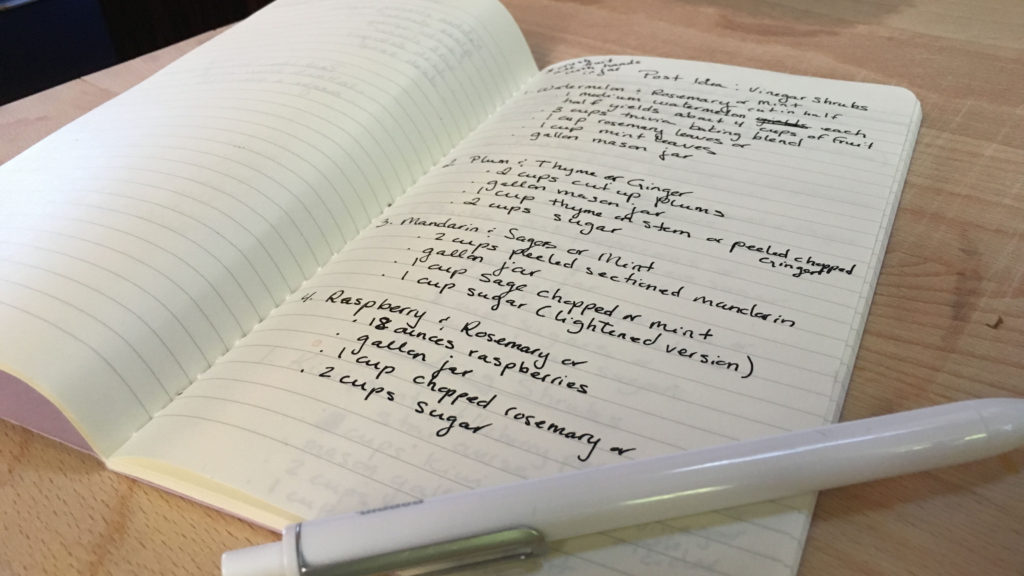 Post Idea: Vinegar Shrubs
Watermelon & Rosemary or Mint
medium watermelon cut in half
half yields about 4 cups of fruit each
3 cups truvia baking blend
1 cup rosemary leaves or
1 cup mint leaves
gallon mason jar
2. Plum & Thyme or Ginger
2 cups cut up plums
gallon mason jar
1 cup thyme on stem or peeled chopped
ginger
2 cups sugar
3. Mandarin & Sage or Mint
2 cups peeled sectioned mandarin
gallon jar
1 cup sage chopped or mint
1 cup sugar (lightened version)
4. Raspberry & Rosemary or
18 ounces raspberries
gallon jar
1 cup chopped rosemary or
2 cups sugar